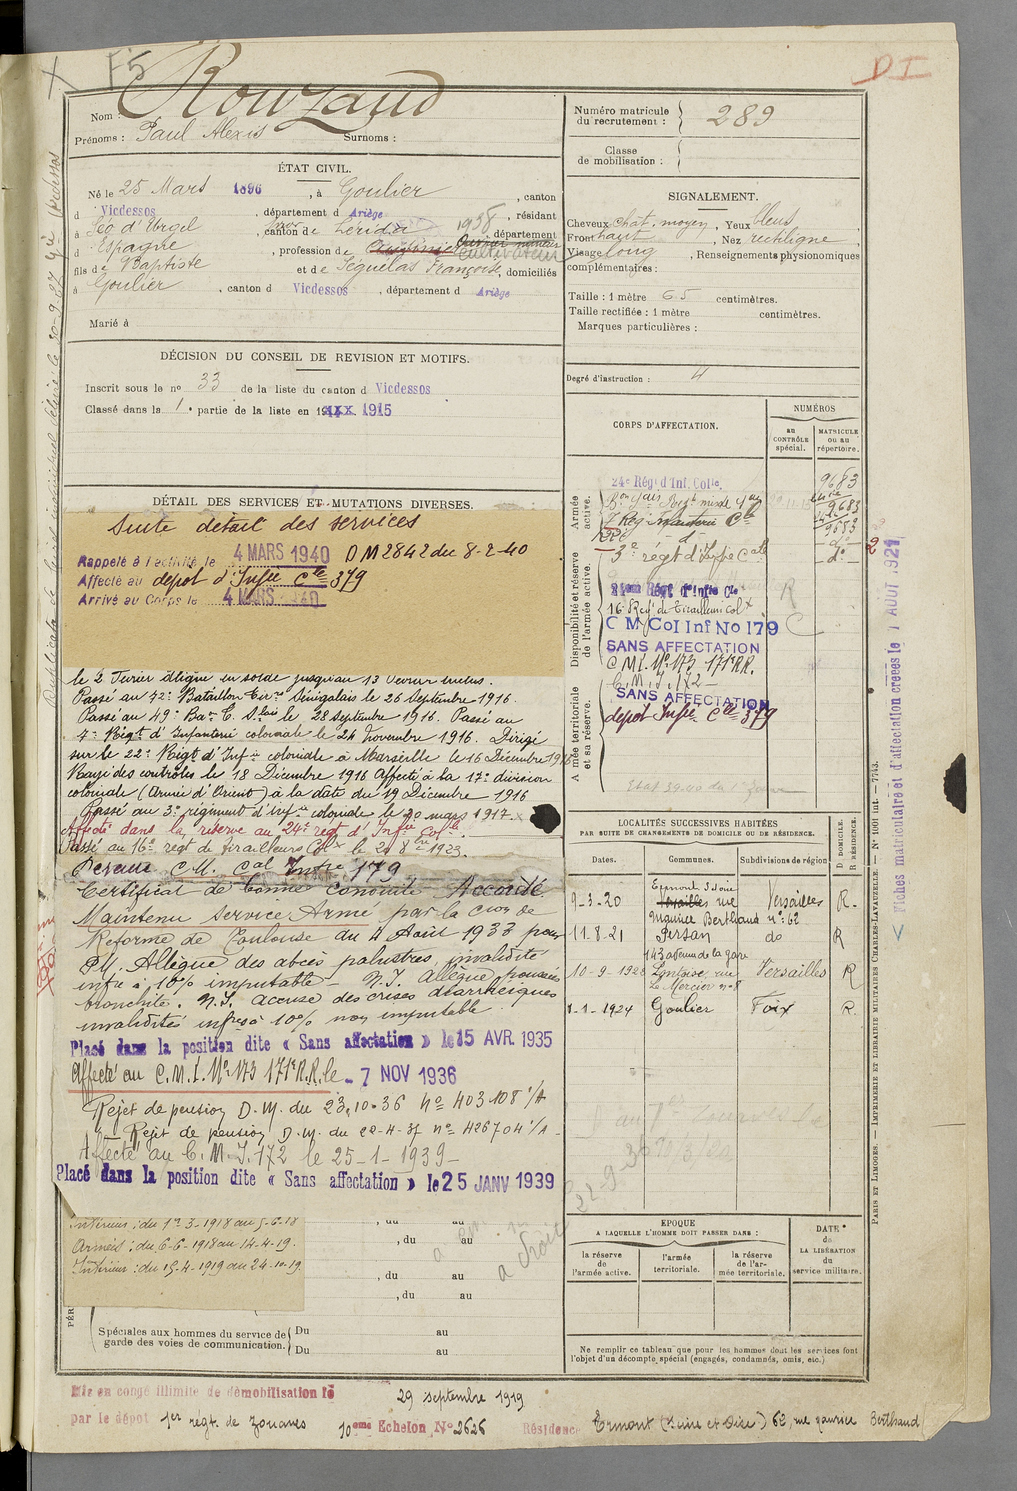 F5
D I
Nom : Rouzaud
Prénoms : Paul Alexis Surnoms :
Numéro matricule du recrutement : 289
Classe de mobilisation :
ÉTAT CIVIL.
Né le 25 Mars 1896, à Goulier, canton
d Vicdessos, département d Ariège, résidant
à Séo d'Urgel, canton de Lérida 1938, département
d Espagne, profession de cultivateur
fils de Baptiste et de Séguélas Françoise, domiciliés
à Goulier, canton d Vicdessos, département d Ariège
Marié à
SIGNALEMENT.
Cheveux chât. moyen, Yeux bleus
Front haut, Nez rectiligne
Visage long, Renseignements physionomiques
complémentaires :
Taille : 1 mètre 65 centimètres.
Taille rectifiée : 1 mètre centimètres.
Marques particulières :
Degré d'instruction : 4
DÉCISION DU CONSEIL DE REVISION ET MOTIFS.
Inscrit sous le no 33 de la liste du canton d Vicdessos
Classé dans la 1e partie de la liste en 1915
DÉTAIL DES SERVICES ET MUTATIONS DIVERSES.
Suite détail des services
Rappelé à l'activité le 4 MARS 1940 DM 2842 du 8-2-40
Affecté au dépot d'Infie Cle 379
Arrivé au Corps le 4 MARS 1940
Passé au 72e Bataillon Sénégalais le 26 Septembre 1916.
Passé au 49e Bon T. Slais le 28 Septembre 1916. Passé au
4e Régt d'Infanterie coloniale le 24 Novembre 1916. Dirigé
sur le 22e Régt d'Infie coloniale à Marseille le 16 Décembre 1916
Rayé des contrôles le 18 Décembre 1916 Affecté à la 17e division
coloniale (Armée d'Orient) à la date du 19 Décembre 1916
Passé au 3e régiment d'infie coloniale le 20 mars 1917.
Affecté dans la réserve au 24e régt d'Infie Colle.
Passé au 16e régt de tirailleurs Colx le 1923.
C.M. Cal Infie 179
Maintenu Service Armé par la Cion de
Réforme de Toulouse du 4 Août 1933 pour
P.M. Allègue des abcès palustres, invalidité
infre à 10% imputable - N.I. Allègue poussées
bronchite. N.I. accuse des crises diarrhéiques
invalidités infres à 10% non imputable
Placé dans la position dite « Sans affectation » le 15 AVR. 1935
Affecté au C.M.I. No 173 171e R.R. le 7 NOV 1936
Rejet de pension D.M. du 23.10.36 no 403108 1/A
Rejet de pension D.M. du 22-4-37 no 426704 1/A
Affecté au C.M.I. 172 le 25-1-1939
Placé dans la position dite « Sans affectation » le 25 JANV 1939
Intérieur : du 1er 3-1918 au 5-6-18
Armées : du 6-6-1918 au 14-4-19.
Intérieur : du 15-4-1919 au 24-10-19
, du au
, du au
, du au
, du au
Spéciales aux hommes du service de garde des voies de communication. Du au
Du au
CORPS D'AFFECTATION.
NUMÉROS
au CONTRÔLE spécial.
MATRICULE ou au répertoire.
Armée active.
24e Régt d'Inf. Colle. 9683
9683
9683
3e régt d'Infie Cale do
Disponibilité et réserve de l'armée active.
21eme Régt d'Infie Cle R
16e Régt de Tirailleurs colx
C M Col Inf No 179
SANS AFFECTATION
C M I. No 173 171e R.R.
C.M.I. 172
Armée territoriale et sa réserve.
SANS AFFECTATION
dépot Infie Cle 379
LOCALITÉS SUCCESSIVES HABITÉES
PAR SUITE DE CHANGEMENTS DE DOMICILE OU DE RÉSIDENCE.
Dates. Communes. Subdivisions de région. D DOMICILE. R RÉSIDENCE.
9-3-20 Ermont S et Oise rue Maurice Berthaud no 62 Versailles R.
11.8.21 Persan do R
143 avenue de la gare
10-9-1922 Pontoise, rue Le Mercier no 8 Versailles R
1-1-1924 Goulier Foix R.
ÉPOQUE
A LAQUELLE L'HOMME DOIT PASSER DANS :
la réserve de l'armée active.
l'armée territoriale.
la réserve de l'armée territoriale.
DATE de LA LIBÉRATION du service militaire.
Ne remplir ce tableau que pour les hommes dont les services font l'objet d'un décompte spécial (engagés, condamnés, omis, etc.)
Fiches matriculaire et d'affectation créées le 1 AOUT 1921
PARIS ET LIMOGES. — IMPRIMERIE ET LIBRAIRIE MILITAIRES CHARLES-LAVAUZELLE. — No 1001 int. — 7743.
Mis en congé illimité de démobilisation le 29 septembre 1919
par le dépot 1er régt. de zouaves 10eme Echelon No 2626 Résidence Ermont (Seine et Oise) 62, rue Maurice Berthaud